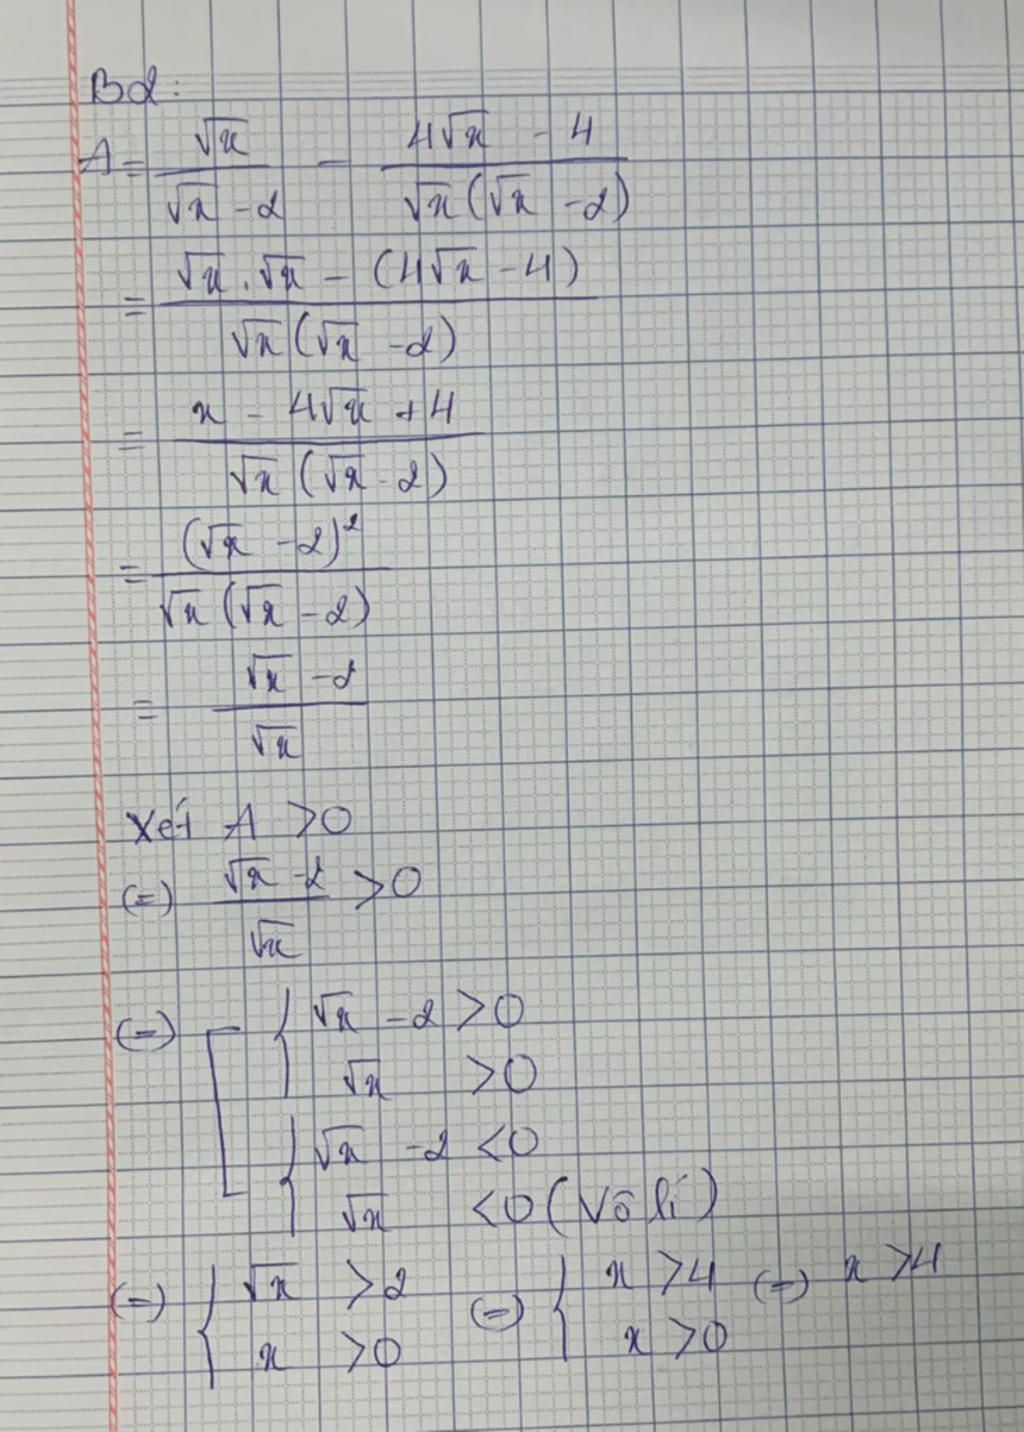 Bd:
A = √x / (√x - 2) - (4√x - 4) / (√x(√x - 2))
= (√x . √x - (4√x - 4)) / (√x(√x - 2))
= (x - 4√x + 4) / (√x(√x - 2))
= (√x - 2)² / (√x(√x - 2))
= (√x - 2) / √x
Xét A > 0
(=) (√x - 2) / √x > 0
(=) [ { √x - 2 > 0
√x > 0
{ √x - 2 < 0
√x < 0 (Vô lí)
(=) { √x > 2 (=) { x > 4 (=) x > 4
x > 0 x > 0